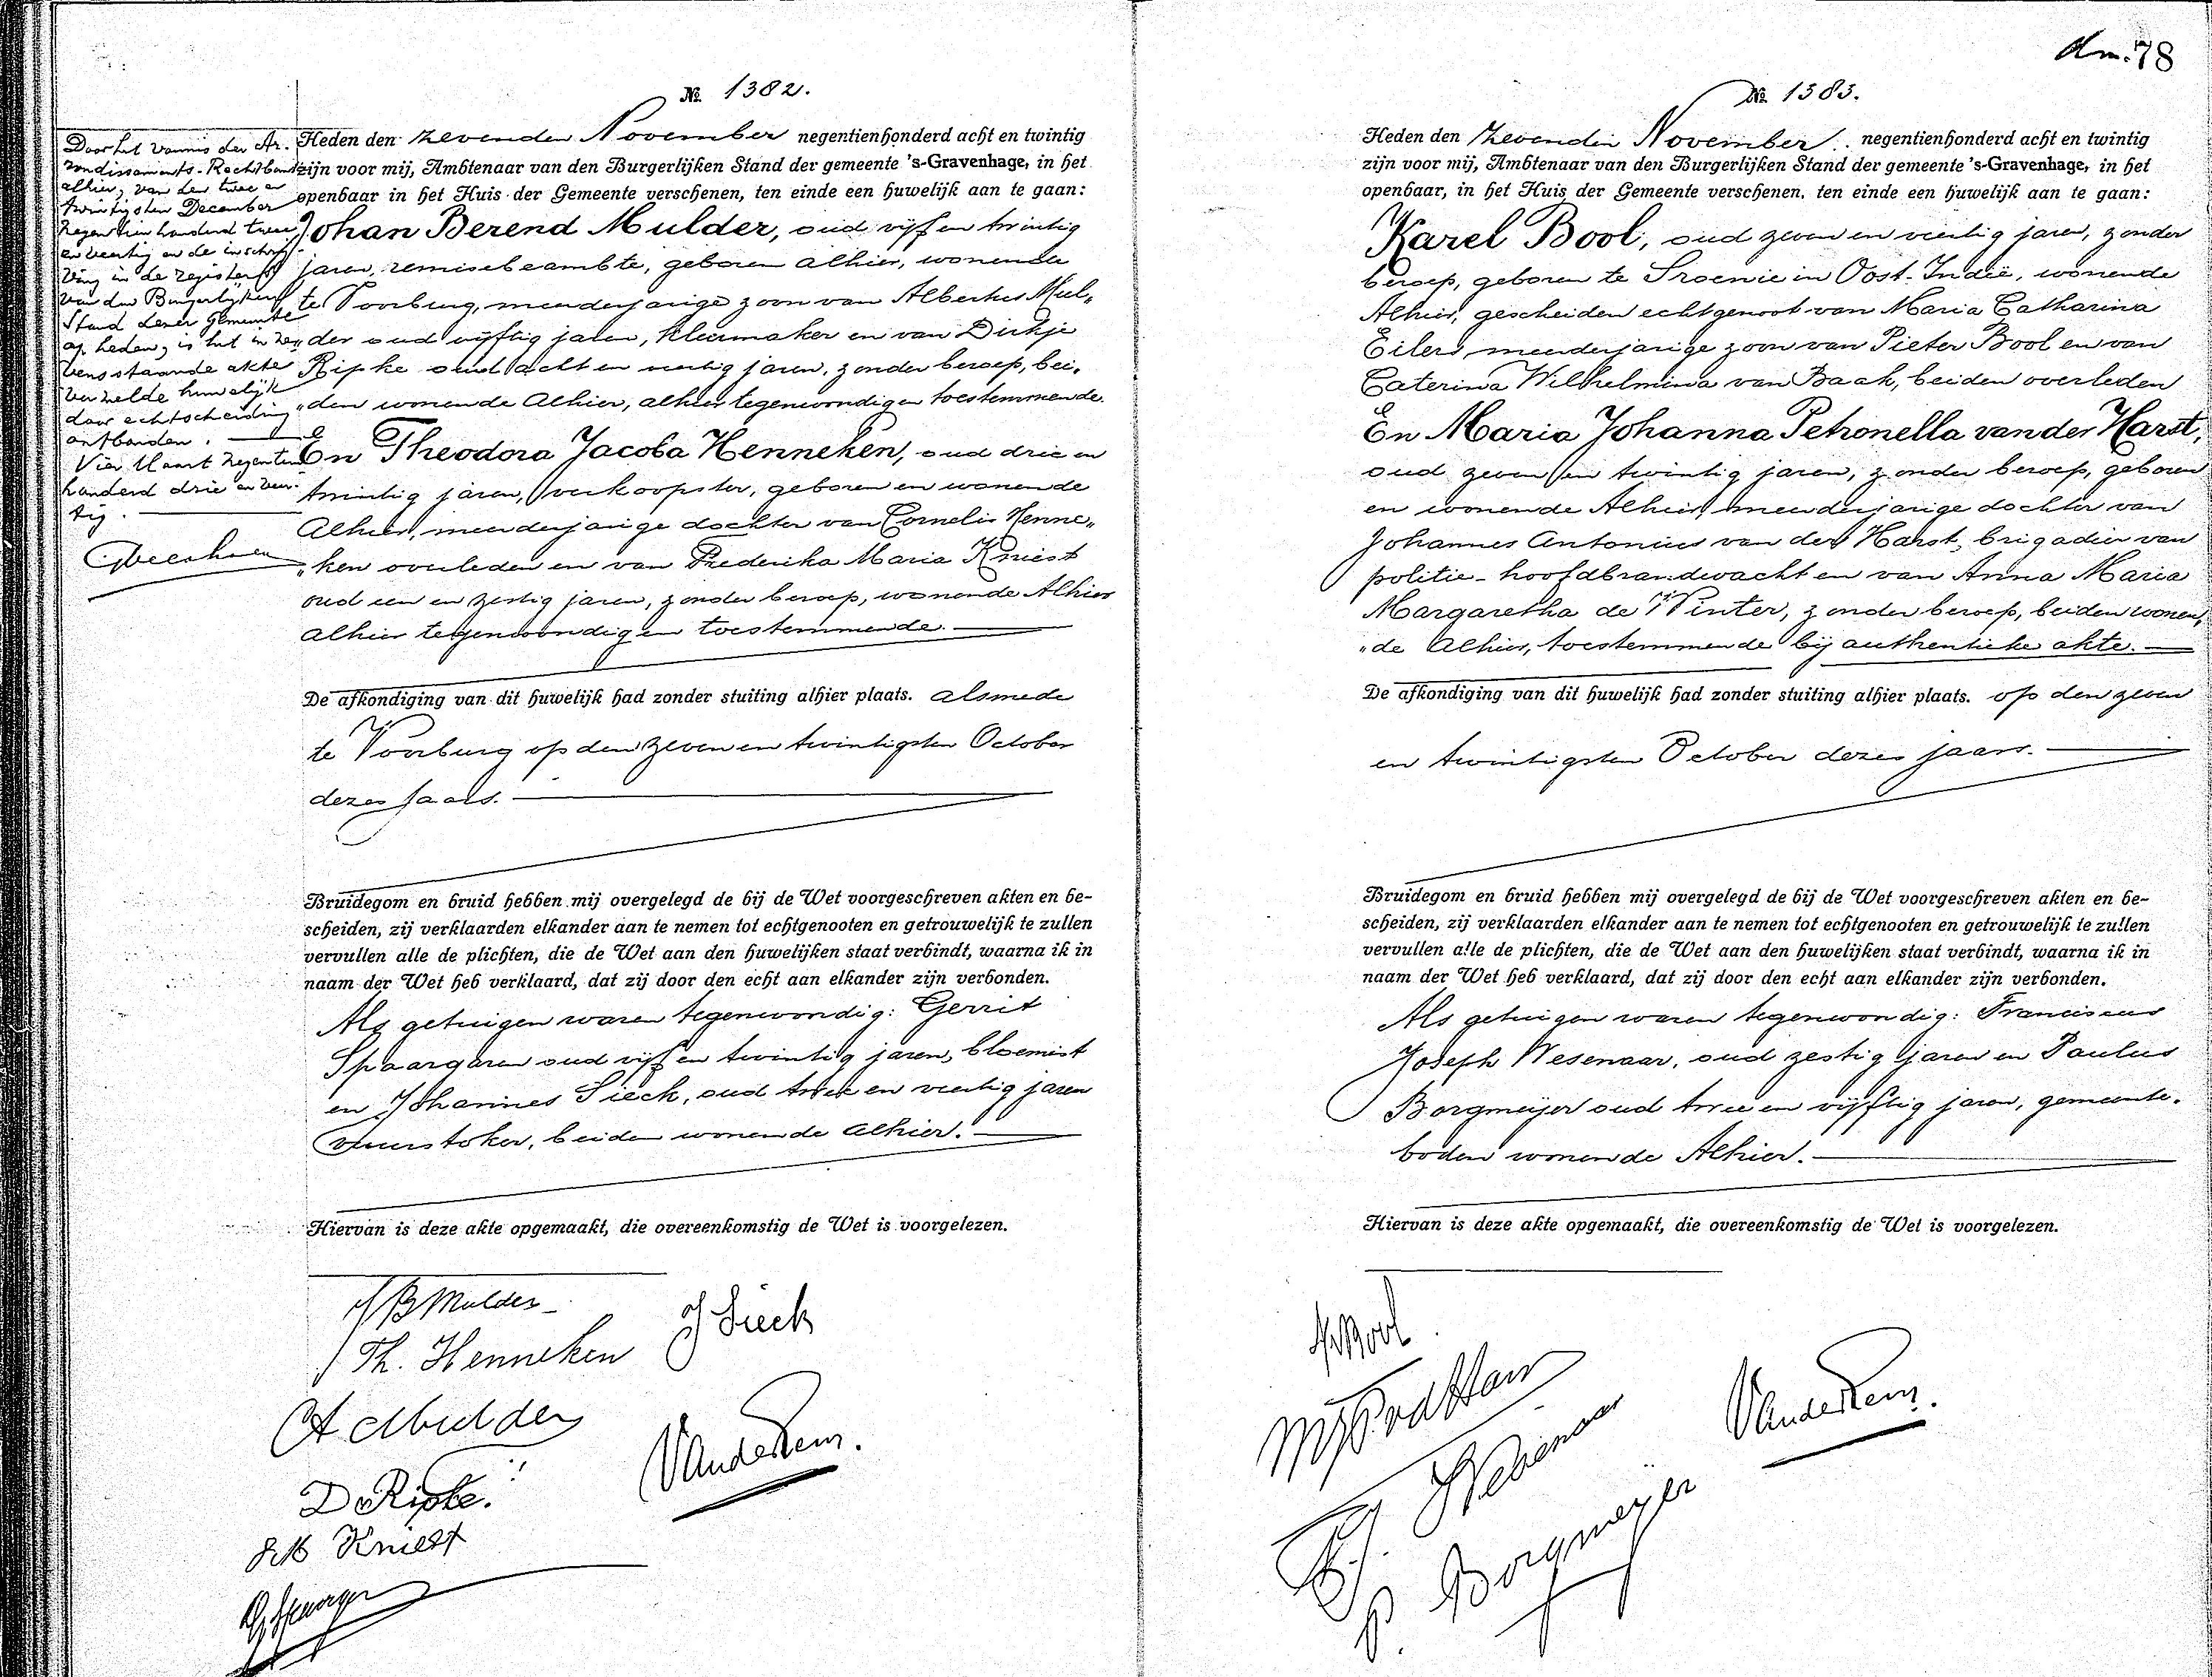 № 1382.
Door het vonnis der Ar-
rondissements-Rechtbank
alhier, van den twee en
twintigsten December
negentienhonderd twee
en veertig en de inschrij-
ving in de registers
van den Burgerlijken
Stand dezer gemeente
op heden, is het in ne„
vensstaande akte
vermelde huwelijk
door echtscheiding
ontbonden.
Vier Maart negentien
honderd drie en veer-
tig.
Heden den zevenden November negentienhonderd acht en twintig
zijn voor mij, Ambtenaar van den Burgerlijken Stand der gemeente 's-Gravenhage, in het
openbaar in het Huis der Gemeente verschenen, ten einde een huwelijk aan te gaan:
Johan Berend Mulder, oud vijf en twintig
jaren, remisebeambte, geboren alhier, wonende
te Voorburg, meerderjarige zoon van Albertus Mul„
der oud vijftig jaren, kleermaker en van Dirkje
Ripke oud acht en veertig jaren, zonder beroep, bei„
„den wonende Alhier, alhier tegenwoordig en toestemmende.
En Theodora Jacoba Henneken, oud drie en
twintig jaren, verkoopster, geboren en wonende
Alhier, meerderjarige dochter van Cornelis Henne„
„ken overleden en van Frederika Maria Kniest
oud een en zestig jaren, zonder beroep, wonende Alhier
alhier tegenwoordig en toestemmende.
De afkondiging van dit huwelijk had zonder stuiting alhier plaats. alsmede
te Voorburg op den zeven en twintigsten October
dezes jaars.
Bruidegom en bruid hebben mij overgelegd de bij de Wet voorgeschreven akten en be-
scheiden, zij verklaarden elkander aan te nemen tot echtgenooten en getrouwelijk te zullen
vervullen alle de plichten, die de Wet aan den huwelijken staat verbindt, waarna ik in
naam der Wet heb verklaard, dat zij door den echt aan elkander zijn verbonden.
Als getuigen waren tegenwoordig: Gerrit
Spaargaren oud vijf en twintig jaren, bloemist
en Johannes Sieck, oud twee en veertig jaren
vuurstoker, beiden wonende alhier.
Hiervan is deze akte opgemaakt, die overeenkomstig de Wet is voorgelezen.
JB Mulder
J Sieck
Th. Henneken
A Mulder
D. Ripke.
FM Kniest
dm. 78
№ 1383.
Heden den zevenden November negentienhonderd acht en twintig
zijn voor mij, Ambtenaar van den Burgerlijken Stand der gemeente 's-Gravenhage, in het
openbaar, in het Huis der Gemeente verschenen, ten einde een huwelijk aan te gaan:
Karel Bool, oud zeven en veertig jaren, zonder
beroep, geboren te Sroenie in Oost-Indië, wonende
Alhier, gescheiden echtgenoot van Maria Catharina
Eilers, meerderjarige zoon van Pieter Bool en van
Caterina Wilhelmina van Baak, beiden overleden
En Maria Johanna Petronella van der Harst,
oud zeven en twintig jaren, zonder beroep, geboren
en wonende Alhier, meerderjarige dochter van
Johannes Antonius van der Harst, brigadier van
politie-hoofdbrandwacht en van Anna Maria
Margaretha de Winter, zonder beroep, beiden wonen„
„de Alhier, toestemmende bij authentieke akte.
De afkondiging van dit huwelijk had zonder stuiting alhier plaats. op den zeven
en twintigsten October dezes jaars.
Bruidegom en bruid hebben mij overgelegd de bij de Wet voorgeschreven akten en be-
scheiden, zij verklaarden elkander aan te nemen tot echtgenooten en getrouwelijk te zullen
vervullen alle de plichten, die de Wet aan den huwelijken staat verbindt, waarna ik in
naam der Wet heb verklaard, dat zij door den echt aan elkander zijn verbonden.
Als getuigen waren tegenwoordig: Franciscus
Joseph Wesenaar, oud zestig jaren en Paulus
Borgmeijer oud twee en vijftig jaren, gemeente-
boden wonende Alhier.
Hiervan is deze akte opgemaakt, die overeenkomstig de Wet is voorgelezen.
K Bool
P. Borgmeijer